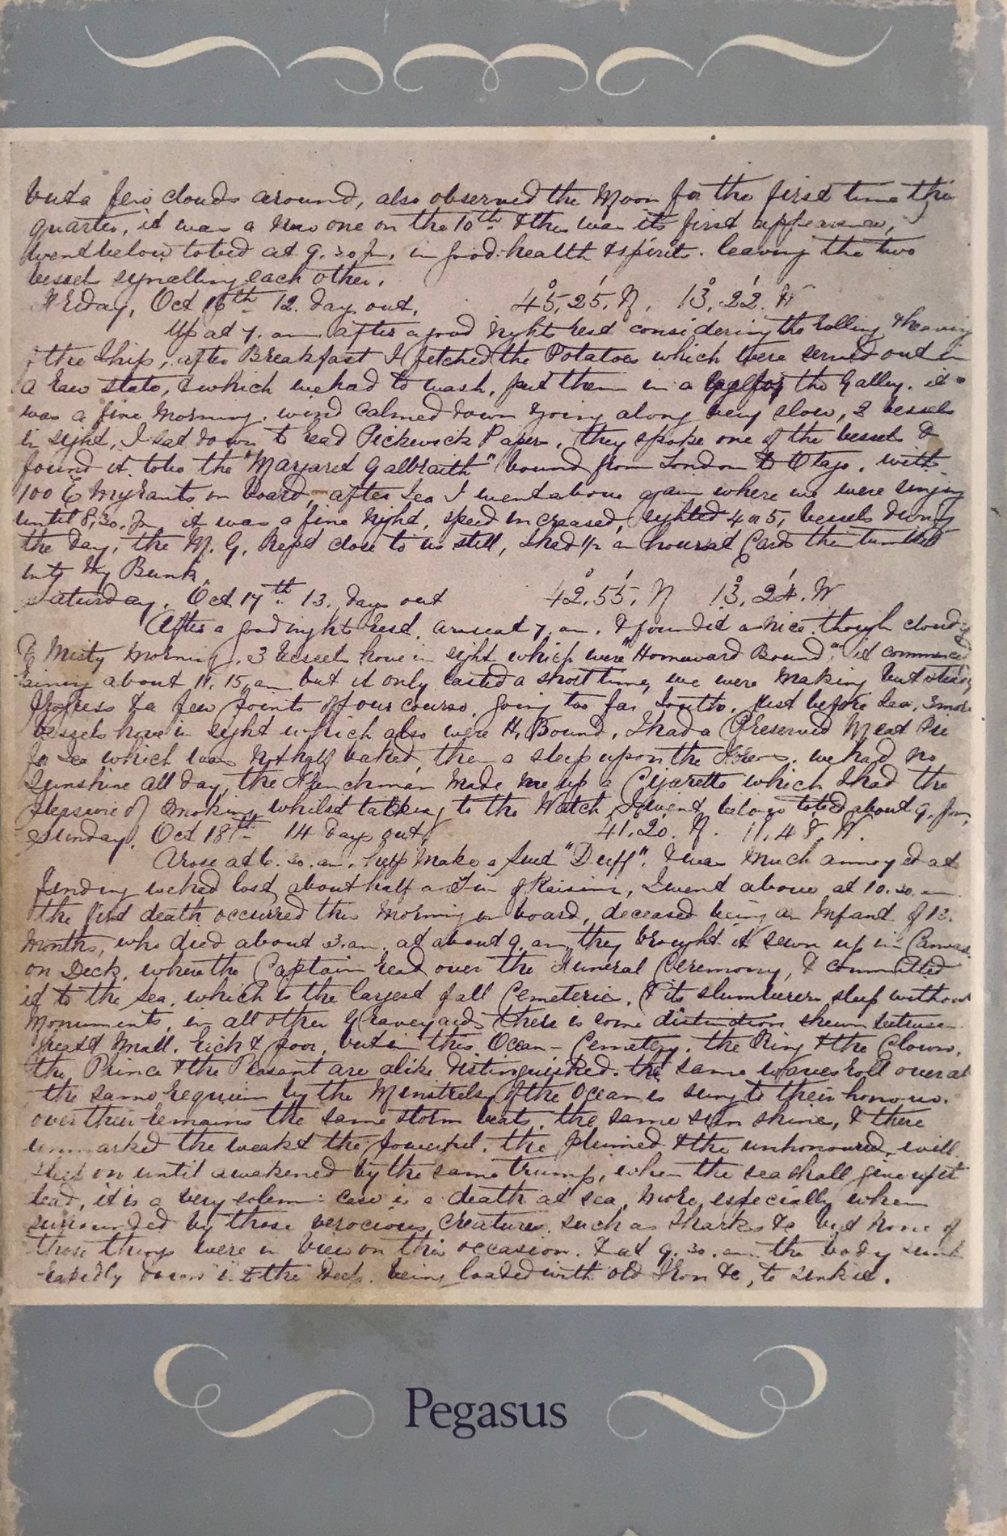 but a few clouds around, also observed the Moon for the first time this
quarter, it was a new one on the 10th & this was its first appearance,
Went below to bed at 9.30 p.m. in good health & spirits. leaving the two
vessels signalling each other.
Friday, Oct 16th 12. day out. 45°.25'. N. 13°.22'. W
Up at 7. am after a good nights rest considering the rolling & heaving
of the Ship, after Breakfast I fetched the Potatoes which were served out in
a raw state, & which we had to wash, put them in a for the Galley. it
was a fine Morning. wind calmed down & going along very slow, 2 vessels
in sight, I sat down to read Pickwick Papers, they spoke one of the vessels &
found it to be the "Margaret Galbraith" bound from London to Otago. with
100 Emigrants on board, after Tea I went above again where we were singing
until 8.30. Pm it was a fine night, speed increased, sighted 4 or 5, vessels during
the day, the M. G. kept close to us still, I had 1/2 an hours at Cards then tumbled
into My Bunk.
Saturday. Oct 17th 13. days out 42°.55'. N 13°.24'. W
After a good nights rest, arose at 7, am. & found it a nice though cloudy
& Misty Morning. 3 vessels hove in sight which were "Homeward Bound", it commenced
raining about 11.15, am but it only lasted a short time, we were making but slow
Progress & a few points off our course, going too far South. Just before tea, 3 more
vessels hove in sight which also were H. Bound, I had a Preserved Meat Pie
for Tea which was Not half baked, then a sleep upon the. we had no
Sunshine all day, the Frenchman made me up a Cigarette which I had the
Pleasure of Smoking whilst talking to the Watch, I went below to bed about 9. Pm,
Sunday. Oct 18th 14 days out. 41.20. N. 11.48. W.
Arose at 6.30. am. help make a Suet "Duff". & was Much annoyed at
finding we had lost about half a Tin of Raisins, I went above at 10.30. am
the first death occurred this Morning on board, deceased being an Infant of 13.
Months, who died about 3. am. at about 9. am, they brought it sewn up in Canvas
on Deck, where the Captain read over the Funeral Ceremony, & committed
it to the Sea. which is the largest of all Cemeteries, & its slumberers sleep without
Monuments, in all other Graveyards there is some distinction shewn between
great & Small. rich & poor, but in this Ocean-Cemetery. the King & the Clown,
the Prince & the Peasant are alike distinguished. the same waves roll over all
the same requiem by the Minstrelsy of the Ocean is sung to their honour.
over their remains the same storm beats, the same sun shines, & there
unmarked the weak & the powerful. the plumed & the unhonoured, will
sleep on until awakened by the same trump, when the sea shall give up its
dead, it is a very solemn case is a death at sea, more especially when
surrounded by those verocious Creatures. such as Sharks &c but none of
those things were in view on this occasion. & at 9.30. am the body sunk
rapidly down into the Deep. being loaded with old Iron &c, to sink it.
Pegasus